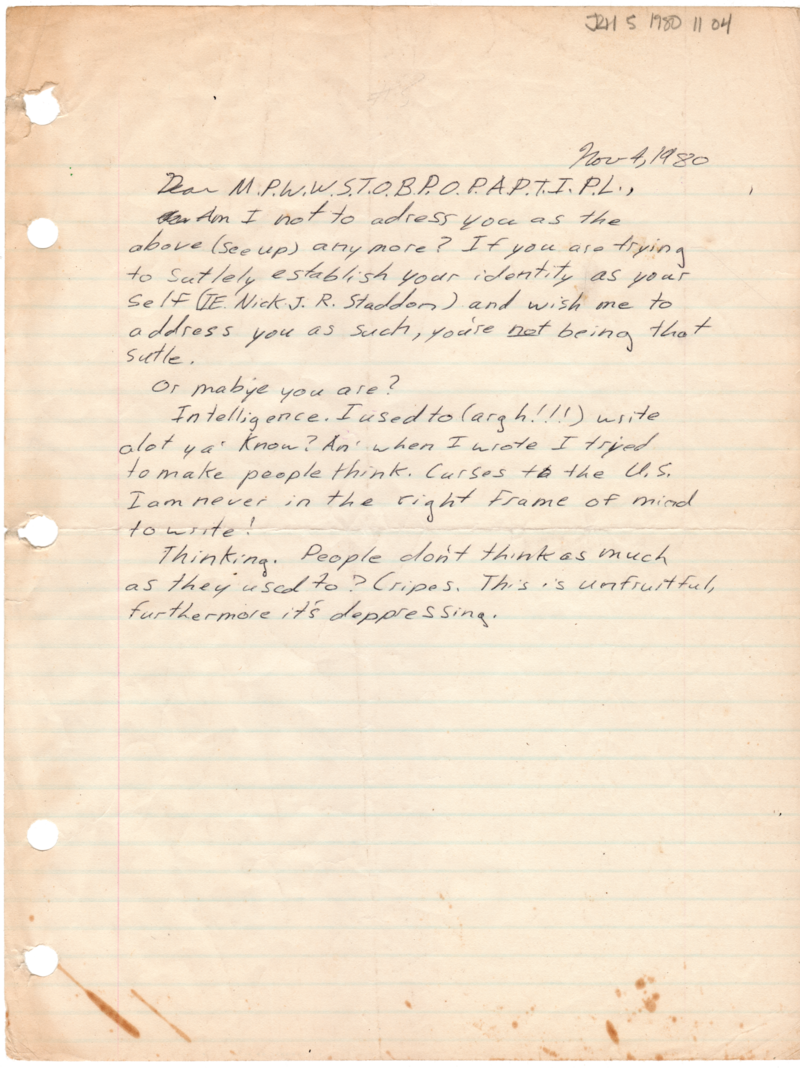 JRH 5 1980 11 04
Nov 4, 1980
Dear M.P.W.W.S.T.O.B.P.O.P.A.P.T.I.P.L.,
Am I not to adress you as the
above (see up) anymore? If you are trying
to sutlely establish your identity as your
self (IE. Nick J. R. Staddon) and wish me to
address you as such, you're not being that
sutle.
Or mabye you are?
Intelligence. I used to (argh!!!!) write
alot ya' know? An' when I wrote I tryed
to make people think. Curses to the U.S.
I am never in the right frame of mind
to write!
Thinking. People don't think as much
as they used to? Cripes. This is unfruitful,
furthermore it's deppressing.